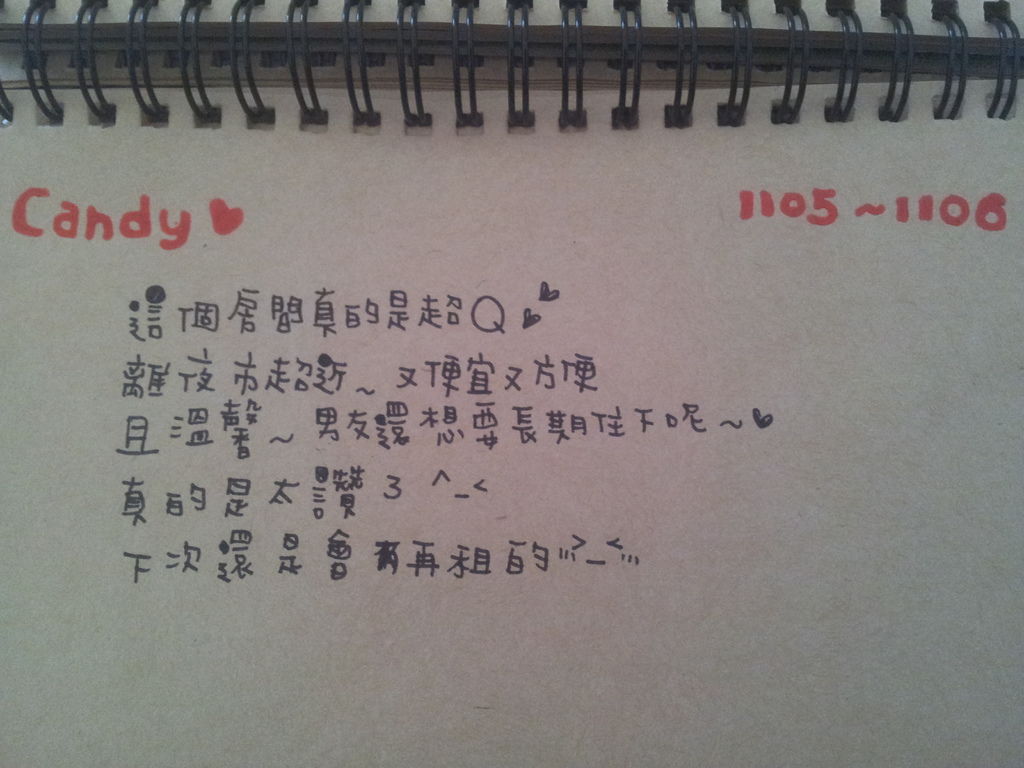 Candy♥ 1105～1106
這個房間真的是超Q
離夜市超近~又便宜又方便
且溫馨~男友還想要長期住下呢~♥
真的是太讚了^_<
下次還是會再租的>_<